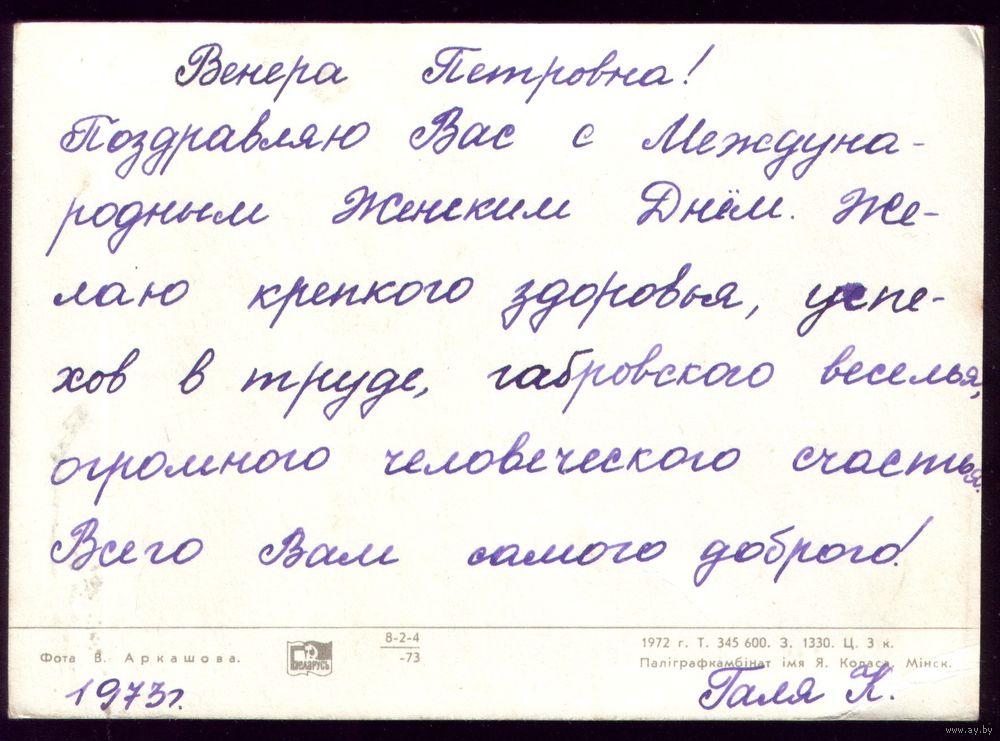 Венера Петровна!
Поздравляю Вас с Междуна-
родным Женским Днём. Же-
лаю крепкого здоровья, успе-
хов в труде, габровского веселья,
огромного человеческого счастья.
Всего Вам самого доброго!
8-2-4
-73
1972 г. Т. 345 600. З. 1330. Ц. 3 к.
Фота В. Аркашова.
БЕЛАРУСЬ
Паліграфкамбінат імя Я. Коласа, Мінск.
1973г.
Галя К.
www.ay.by